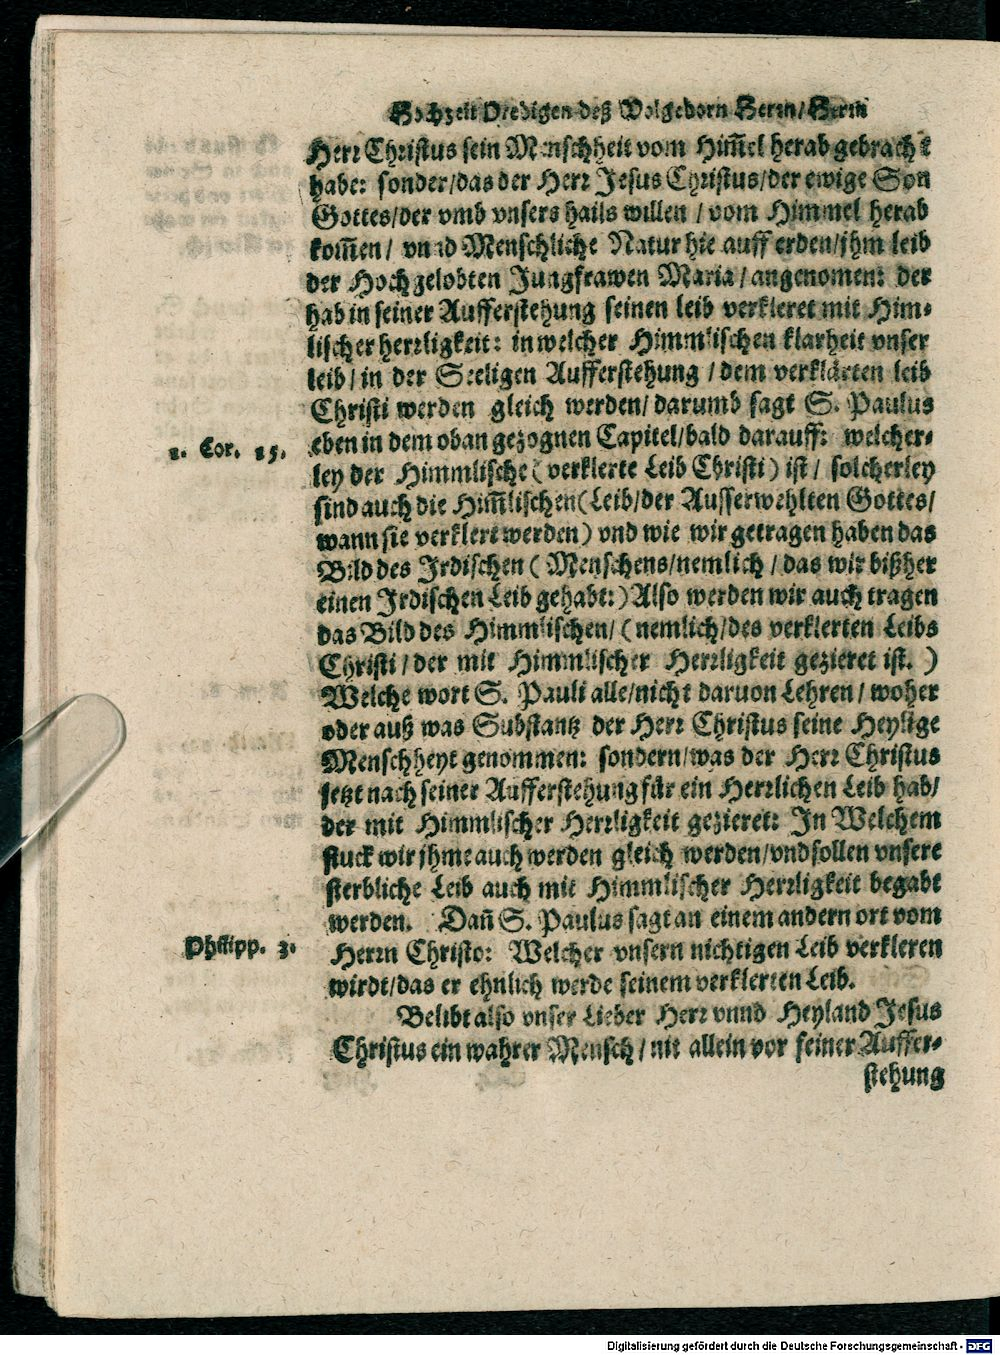 Hochzeit Predigen deß Wolgeborn Herrn/ Herrn
Herr Christus sein Menschheit vom Him̃el herab gebracht
habe: sonder/das der Herr Jesus Christus/der ewige Son
Gottes/der vmb vnsers hails willen / vom Himmel herab
kom̃en/ vnnd Menschliche Natur hie auff erden/jhm leib
der Hochgelobten Jungfrawen Maria/angenomen: der
hab in seiner Aufferstehung seinen leib verkleret mit Him-
lischer herrligkeit: in welcher Himmlischen klarheit vnser
leib/ in der Seeligen Aufferstehung / dem verklärten leib
Christi werden gleich werden/ darumb sagt S. Paulus
1. Cor. 15. eben in dem oban gezognen Capitel/bald darauff: welcher-
ley der Himmlische ( verklerte Leib Christi ) ist/ solcherley
sind auch die Him̃lischen (Leib/der Ausserwehlten Gottes/
wann sie verklert werden ) vnd wie wir getragen haben das
Bild des Irdischen ( Menschens/nemlich / das wir bißher
einen Irdischen Leib gehabt:) Also werden wir auch tragen
das Bild des Himmlischen/ (nemlich/des verklerten Leibs
Christi / der mit Himmlischer Herrligkeit gezieret ist. )
Welche wort S. Pauli alle/nicht daruon Lehren / woher
oder auß was Substantz der Herr Christus seine Heylige
Menschheyt genommen: sondern/was der Herr Christus
jetzt nach seiner Aufferstehung für ein Herrlichen Leib hab/
der mit Himmlischer Herrligkeit gezieret: In Welchem
stuck wir jhme auch werden gleich werden/vnd sollen vnsere
sterbliche Leib auch mit Himmlischer Herrligkeit begabt
werden. Dan̄ S. Paulus sagt an einem andern ort vom
Philipp. 3. Herrn Christo: Welcher vnsern nichtigen Leib verkleren
wirdt/das er ehnlich werde seinem verklerten Leib.
Belibt also vnser Lieber Herr vnnd Heyland Jesus
Christus ein wahrer Mensch / nit allein vor seiner Auffer-
stehung
Digitalisierung gefördert durch die Deutsche Forschungsgemeinschaft - DFG